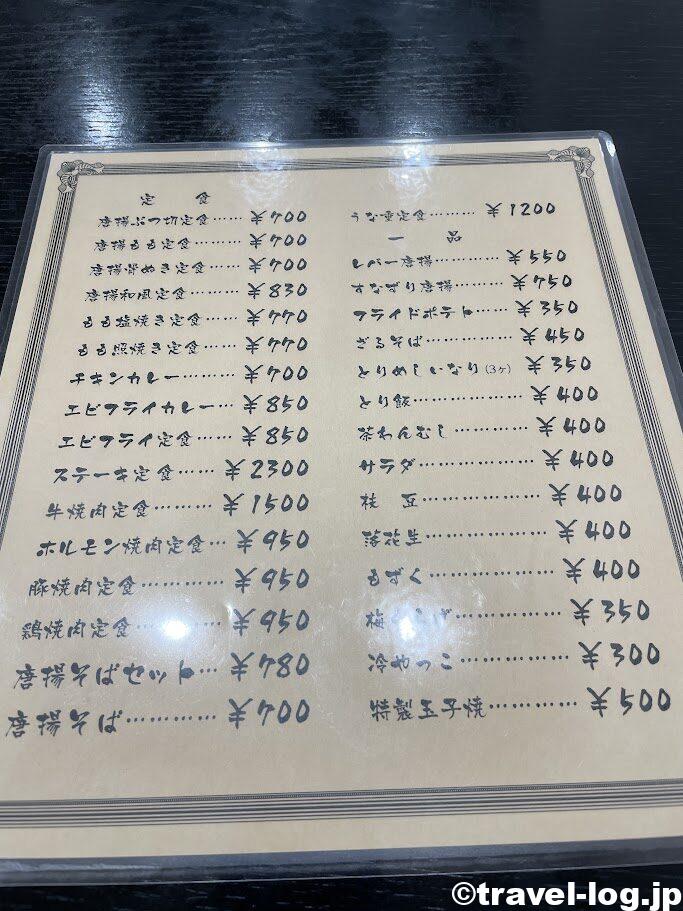 定食
唐揚ぶつ切定食……¥700
唐揚もも定食……¥700
唐揚骨ぬき定食……¥700
唐揚和風定食………¥830
もも塩焼き定食……¥770
もも照焼き定食……¥770
チキンカレー………¥700
エビフライカレー…¥850
エビフライ定食……¥850
ステーキ定食……¥2300
牛焼肉定食………¥1500
ホルモン焼肉定食…¥950
豚焼肉定食…………¥950
鶏焼肉定食…………¥950
唐揚そばセット…¥780
唐揚そば…………¥700
うな重定食………¥1200
一品
レバー唐揚………¥550
すなずり唐揚……¥750
フライドポテト…¥350
ざるそば…………¥450
とりめしいなり(3ヶ)¥350
とり飯……………¥400
茶わんむし………¥400
サラダ……………¥400
枝豆………………¥400
落花生……………¥400
もずく……………¥400
…………¥350
冷やっこ…………¥300
特製玉子焼…………¥500
©travel-log.jp